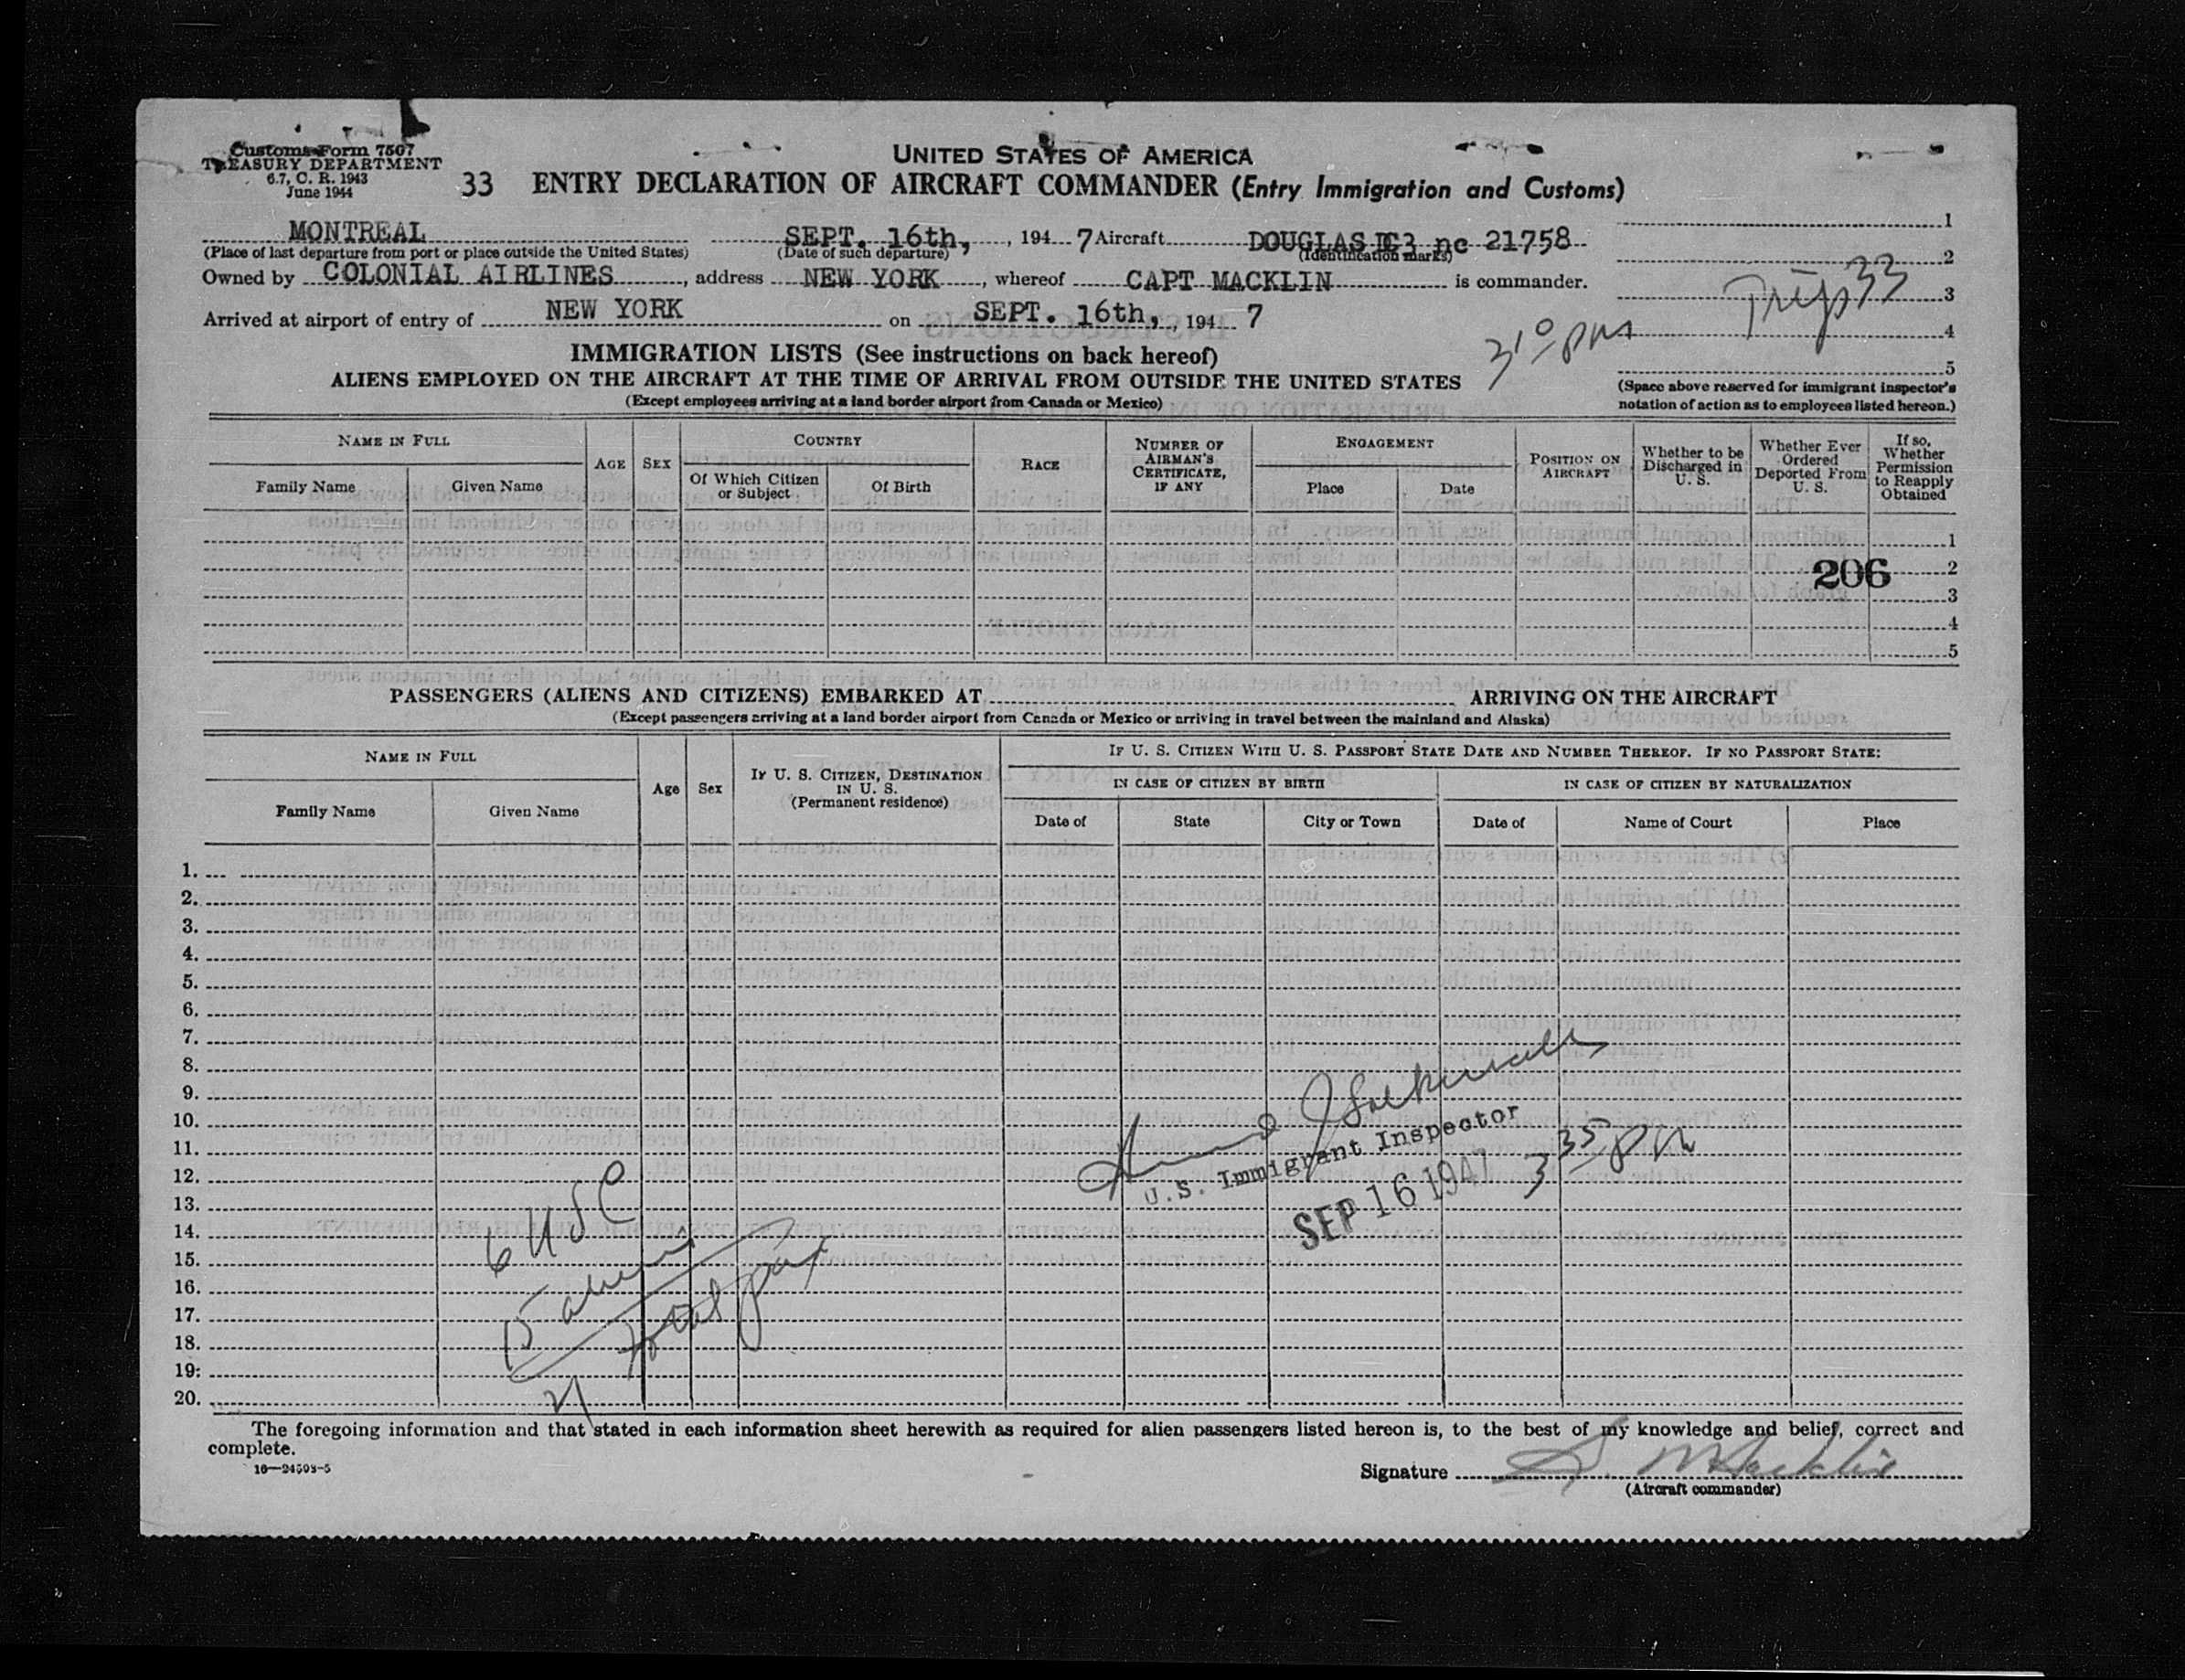 Customs Form 7507
TREASURY DEPARTMENT
6.7, C. R. 1943
June 1944
UNITED STATES OF AMERICA
33 ENTRY DECLARATION OF AIRCRAFT COMMANDER (Entry Immigration and Customs)
MONTREAL SEPT. 16th, , 194 7 Aircraft DOUGLAS DC3 nc 21758
(Place of last departure from port or place outside the United States) (Date of such departure) (Identification marks)
Owned by COLONIAL AIRLINES, address NEW YORK, whereof CAPT MACKLIN is commander.
Arrived at airport of entry of NEW YORK on SEPT. 16th, , 194 7
1
2
3
4
5
Trip 33
3 10 pm
(Space above reserved for immigrant inspector's
notation of action as to employees listed hereon.)
IMMIGRATION LISTS (See instructions on back hereof)
ALIENS EMPLOYED ON THE AIRCRAFT AT THE TIME OF ARRIVAL FROM OUTSIDE THE UNITED STATES
(Except employees arriving at a land border airport from Canada or Mexico)
NAME IN FULL
Family Name Given Name
AGE SEX
COUNTRY
Of Which Citizen or Subject Of Birth
RACE
NUMBER OF AIRMAN'S CERTIFICATE, IF ANY
ENGAGEMENT
Place Date
POSITION ON AIRCRAFT
Whether to be Discharged in U. S.
Whether Ever Ordered Deported From U. S.
If so, Whether Permission to Reapply Obtained
1
206 2
3
4
5
PASSENGERS (ALIENS AND CITIZENS) EMBARKED AT ARRIVING ON THE AIRCRAFT
(Except passengers arriving at a land border airport from Canada or Mexico or arriving in travel between the mainland and Alaska)
NAME IN FULL
Family Name Given Name
Age Sex
IF U. S. CITIZEN, DESTINATION IN U. S.
(Permanent residence)
IF U. S. CITIZEN WITH U. S. PASSPORT STATE DATE AND NUMBER THEREOF. IF NO PASSPORT STATE:
IN CASE OF CITIZEN BY BIRTH IN CASE OF CITIZEN BY NATURALIZATION
Date of State City or Town Date of Name of Court Place
1.
2.
3.
4.
5.
6.
7.
8.
9.
10.
11.
12.
13.
14.
15.
16.
17.
18.
19.
20.
U.S. Immigrant Inspector
SEP 16 1947 3 35 pm
6 USC
15 aliens
21 total pax
The foregoing information and that stated in each information sheet herewith as required for alien passengers listed hereon is, to the best of my knowledge and belief, correct and
complete.
16—24503-5
Signature Macklin
(Aircraft commander)